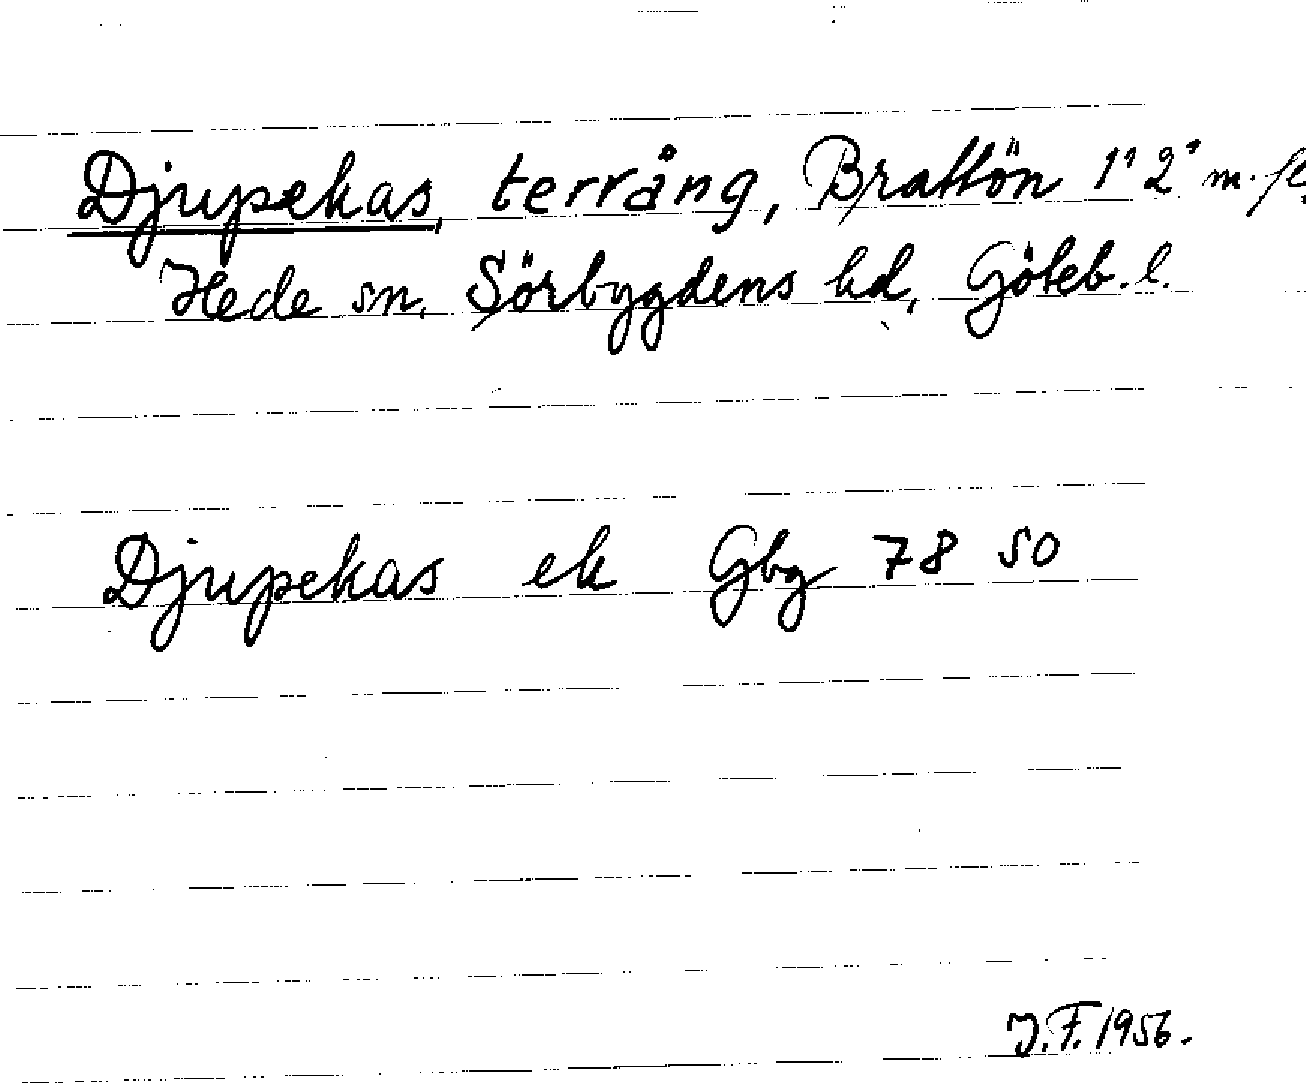 Djupekas, terräng, Brattön 1¹ 2¹ m. fl.
Hede sn. Sörbygdens hd, Göteb. l.
Djupekas ek Gbg 78 50
J.F. 1956.